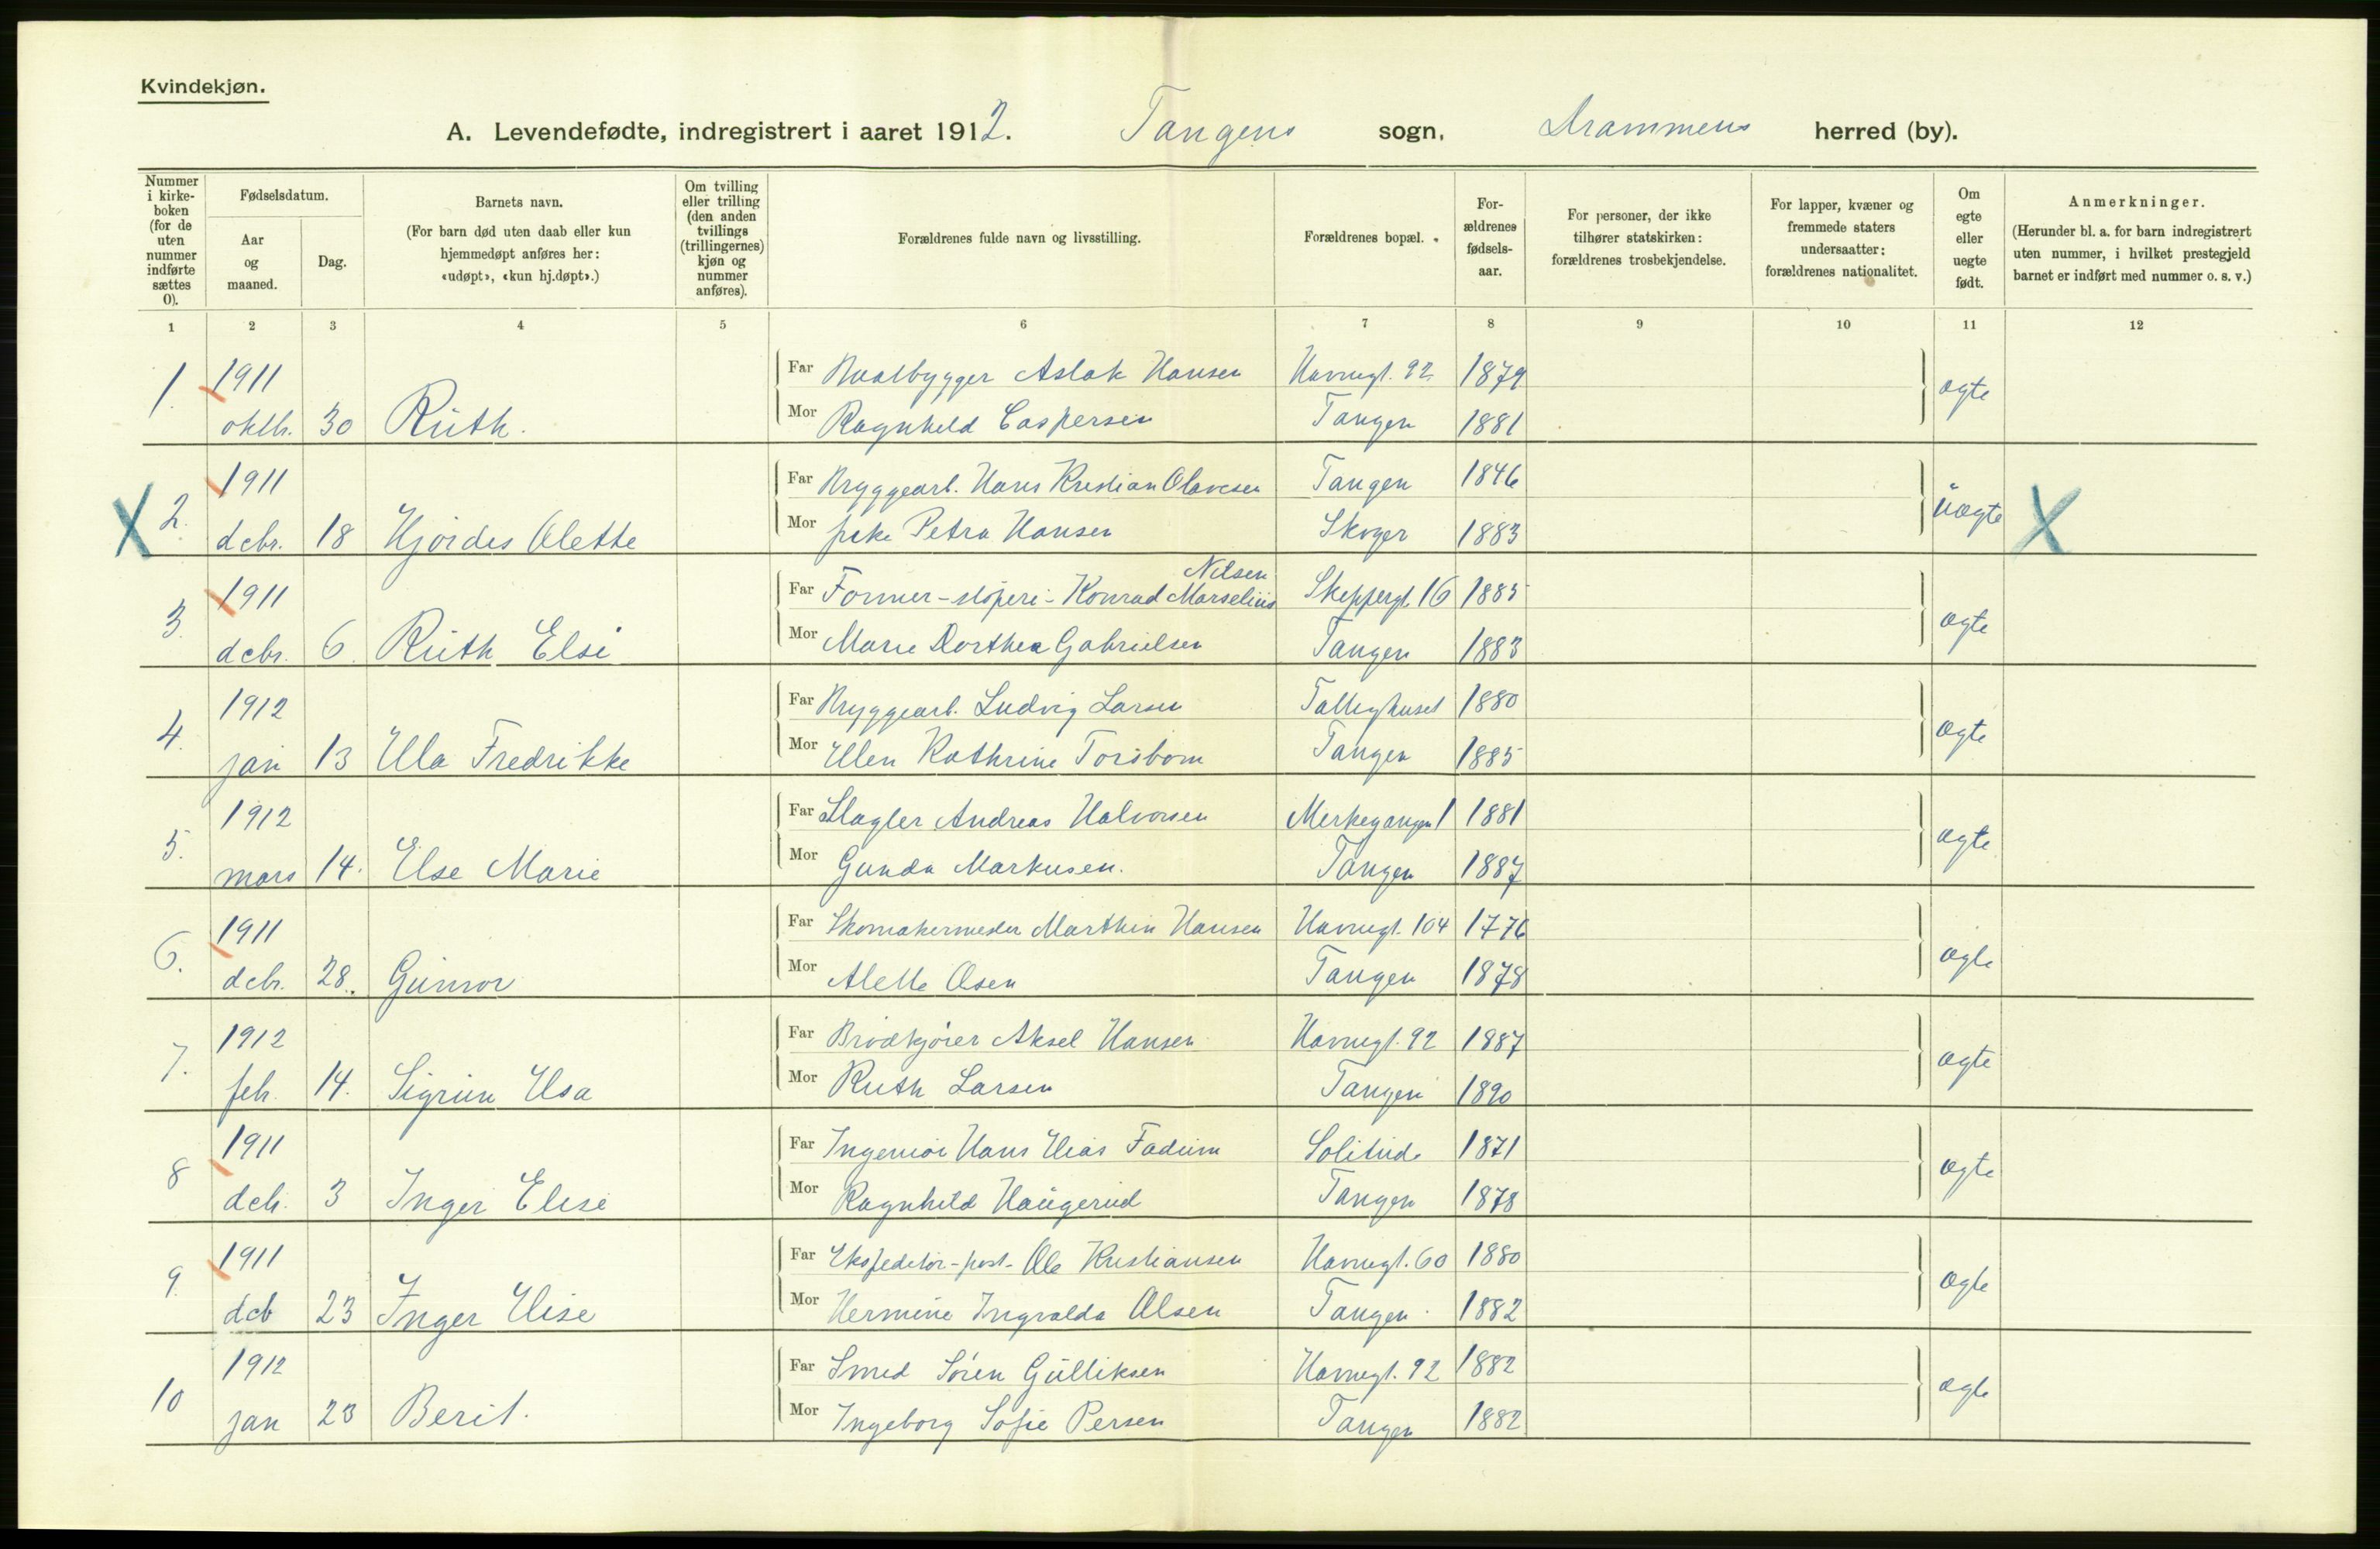 Kvindekjøn.
A. Levendefødte, indregistrert i aaret 1912. Tangens sogn, Drammens herred (by).
Nummer i kirke-boken (for de uten nummer indførte sættes 0).
Fødselsdatum.
Aar og maaned.
Dag.
Barnets navn.
(For barn død uten daab eller kun hjemmedøpt anføres her: «udøpt», «kun hj.døpt».)
Om tvilling eller trilling (den anden tvillings (trillingernes) kjøn og nummer anføres).
Forældrenes fulde navn og livsstilling.
Forældrenes bopæl.
For-ældrenes fødsels-aar.
For personer, der ikke tilhører statskirken: forældrenes trosbekjendelse.
For lapper, kvæner og fremmede staters undersaatter: forældrenes nationalitet.
Om egte eller uegte født.
Anmerkninger.
(Herunder bl. a. for barn indregistrert uten nummer, i hvilket prestegjeld barnet er indført med nummer o. s. v.)
1 2 3 4 5 6 7 8 9 10 11 12
1. 1911 Far Baatbygger Aslak Hansen Havnegt. 92 1879 ægte
oktb. 30 Ruth. Mor Ragnhild Caspersen Tangen 1881
X 2. 1911 Far Bryggearb. Hans Kristian Olavesen Tangen 1846 uægte X
dcbr. 18 Hjørdis Olette Mor pike Petra Hansen Skoger 1883
Nilsen
3. 1911 Far Former-støperi- Konrad Marselius Skippergt. 16 1885 ægte
dcbr. 6. Ruth Elsi Mor Marie Dorthea Gabrielsen Tangen 1883
4. 1912 Far Bryggearb. Ludvig Larsen 1880 ægte
jan 13 Ella Fredrikke Mor Ellen Kathrine Torsbom Tangen 1885
5. 1912 Far Slagter Andreas Halvorsen 1881 ægte
mars 14. Else Marie Mor Gunda Markusen. Tangen 1887
6. 1911 Far Skomakermester Marthin Hansen Havnegt. 104 1776 ægte
dcbr. 28. Gunvor Mor Alette Olsen Tangen 1878
7. 1912 Far Brødkjører Aksel Hansen Havnegt. 92 1887 ægte
febr. 14. Sigrun Elsa Mor Ruth Larsen Tangen 1890
8 1911 Far Ingeniør Hans Elias Fadum Solitude 1871 ægte
dcb. 3 Inger Elise Mor Ragnhild Haugerud Tangen 1878
9. 1911 Far Ekspeditør-post- Ole Kristiansen Havnegt. 60 1880 ægte
dcb 23 Inger Elise Mor Hermine Ingvalda Olsen Tangen 1882
10 1912 Far Smed Søren Gulliksen Havnegt. 92 1882 ægte
jan 23 Berit. Mor Ingeborg Sofie Persen Tangen 1882